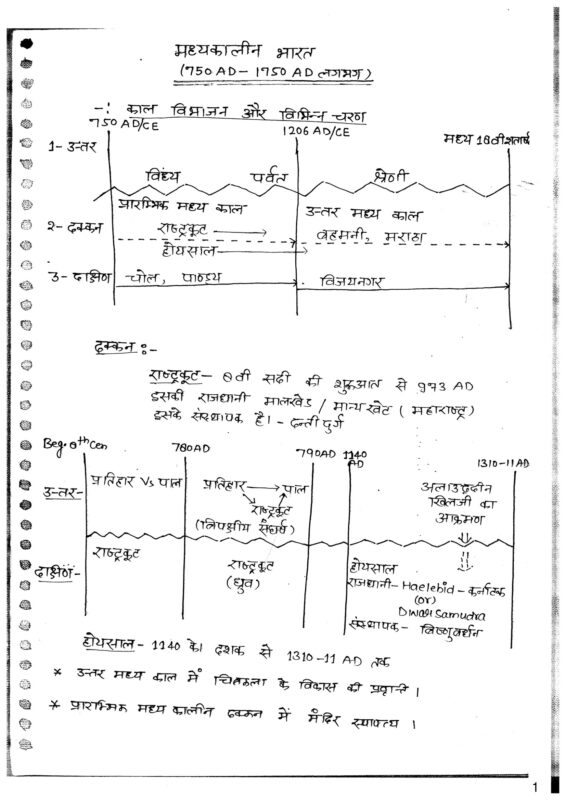 मध्यकालीन भारत
(750 AD - 1750 AD लगभग)
-: काल विभाजन और विभिन्न चरण
750 AD/CE 1206 AD/CE मध्य 18वी शताब्दी
1- उत्तर
विंध्य पर्वत श्रेणी
प्रारम्भिक मध्य काल उत्तर मध्य काल
2- दक्कन राष्ट्रकूट बहमनी, मराठा
होयसाल
3- दक्षिण चोल, पाण्ड्य विजयनगर
दक्कन :-
राष्ट्रकूट - 8वी सदी की शुरूआत से 993 AD
इसकी राजधानी मालखेड / मान्यखेट (महाराष्ट्र)
इसके संस्थापक है। - दन्तीदुर्ग
Beg. 8th Cen 780AD 790AD 1140 AD 1310-11 AD
उत्तर- प्रतिहार Vs पाल प्रतिहार पाल
राष्ट्रकूट
(त्रिपक्षीय संघर्ष)
अलाउद्दीन
खिलजी का
आक्रमण
दक्षिण- राष्ट्रकूट राष्ट्रकूट
(ध्रुव)
होयसाल
राजधानी - Haelebid - कर्नाटक
(or)
Dwar Samudra
संस्थापक - विष्णुवर्धन
होयसाल - 1140 के दशक से 1310-11 AD तक
* उत्तर मध्य काल में चित्रकला के विकास की प्रवृत्ति।
* प्रारम्भिक मध्य कालीन दक्कन में मंदिर स्थापत्य।
1